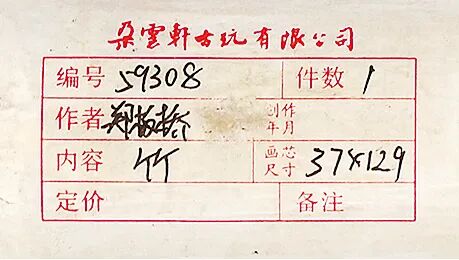 朵雲軒古玩有限公司
编号 59308 件数 1
作者 郑板桥 创作年月
内容 竹 画芯尺寸 37×129
定价 备注